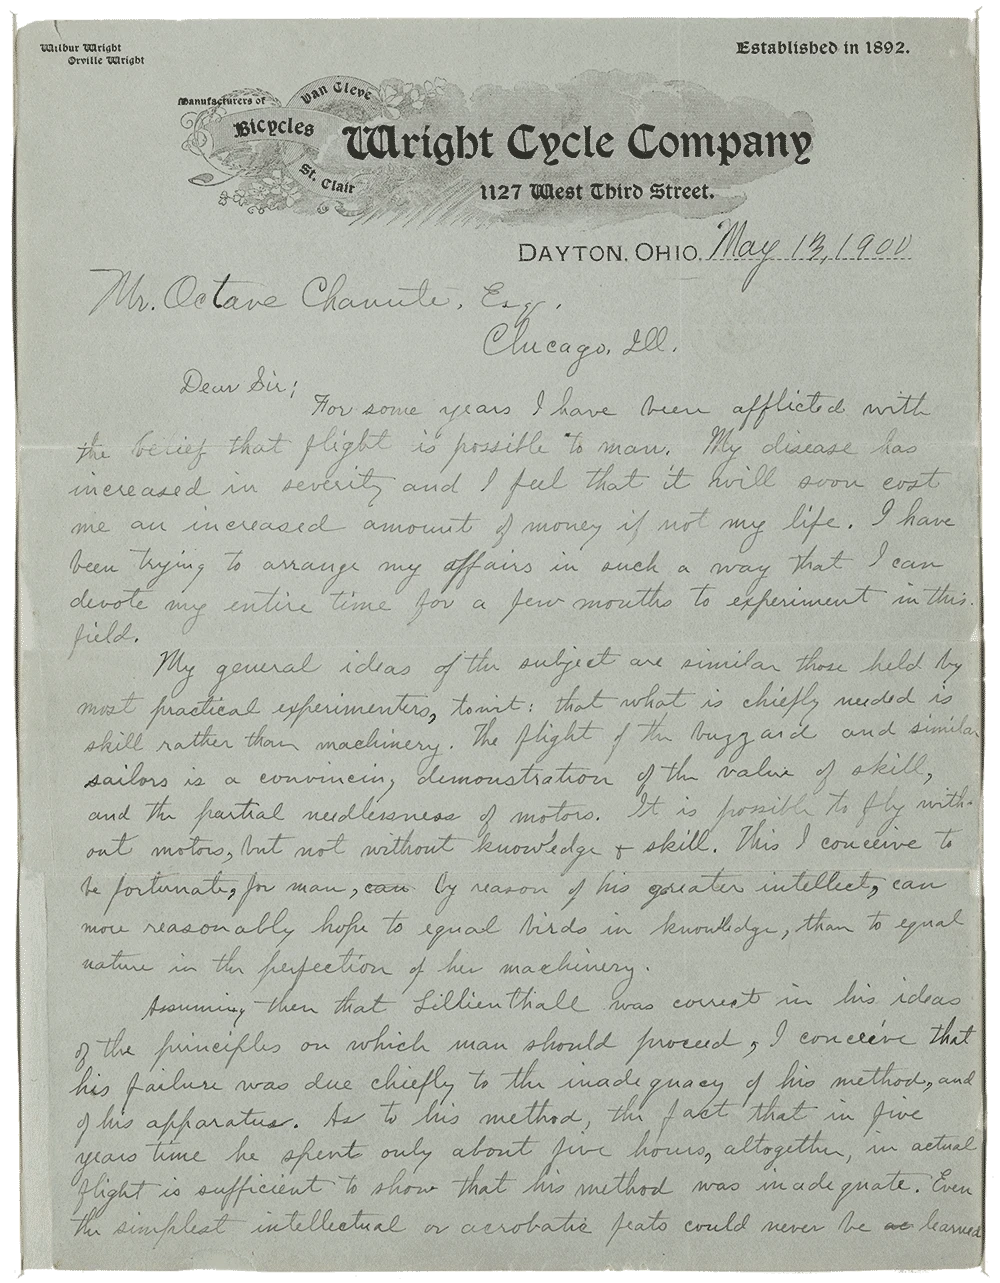 Wilbur Wright
Orville Wright
Established in 1892.
Manufacturers of
Van Cleve
Bicycles
St. Clair
Wright Cycle Company
1127 West Third Street.
DAYTON, OHIO, May 13, 1900
Mr. Octave Chanute, Esq.
Chicago, Ill.
Dear Sir;
For some years I have been afflicted with
the belief that flight is possible to man. My disease has
increased in severity and I feel that it will soon cost
me an increased amount of money if not my life. I have
been trying to arrange my affairs in such a way that I can
devote my entire time for a few months to experiment in this
field.
My general ideas of the subject are similar those held by
most practical experimenters, towit: that what is chiefly needed is
skill rather than machinery. The flight of the buzzard and similar
sailors is a convincing demonstration of the value of skill,
and the partial needlessness of motors. It is possible to fly with-
out motors, but not without knowledge & skill. This I conceive to
be fortunate, for man, can by reason of his greater intellect, can
more reasonably hope to equal birds in knowledge, than to equal
nature in the perfection of her machinery.
Assuming then that Lillienthall was correct in his ideas
of the principles on which man should proceed, I conceive that
his failure was due chiefly to the inadequacy of his method, and
of his apparatus. As to his method, the fact that in five
years time he spent only about five hours, altogether, in actual
flight is sufficient to show that his method was inadequate. Even
the simplest intellectual or acrobatic feats could never be learned